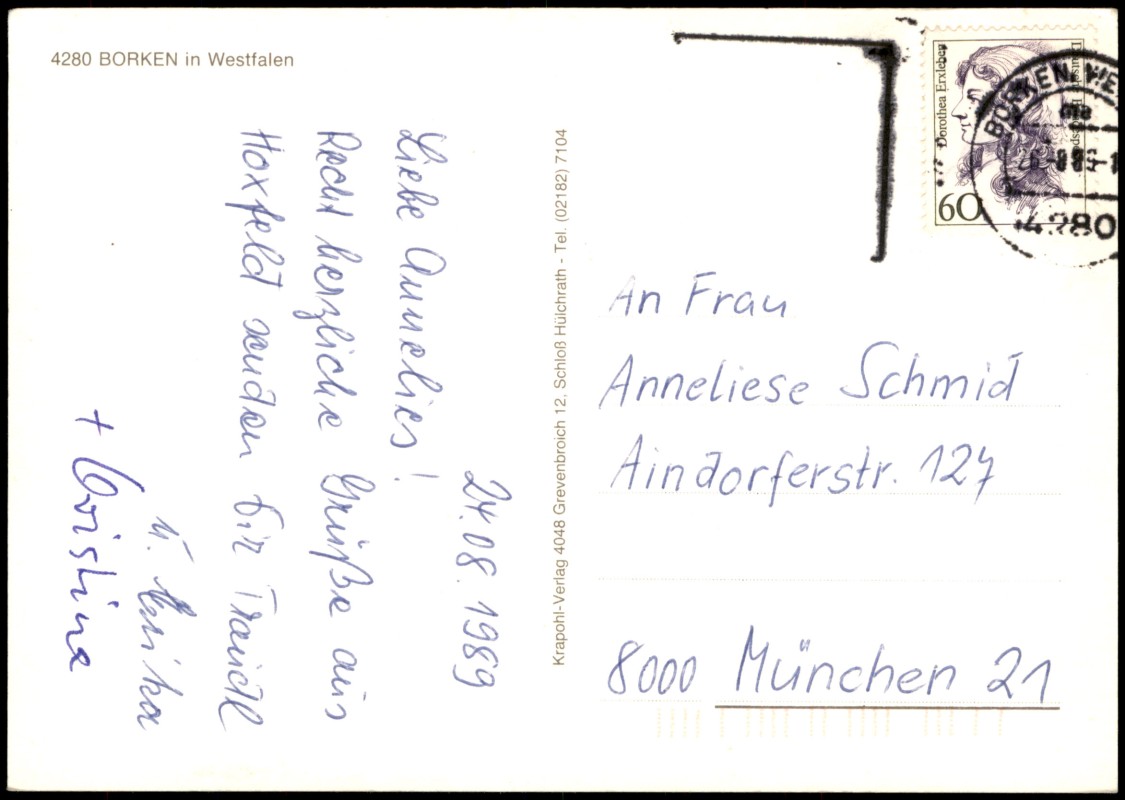 4280 BORKEN in Westfalen
24.08.1989
Liebe Annelies!
Recht herzliche Grüße aus
Hoxfeld senden Dir Traudl
u. Erika
+ Christina
Krapohl-Verlag 4048 Grevenbroich 12, Schloß Hülchrath - Tel. (02182) 7104
Dorothea Erxleben
60
Deutsche
BORKEN, WE
4280
An Frau
Anneliese Schmid
Aindorferstr. 127
8000 München 21